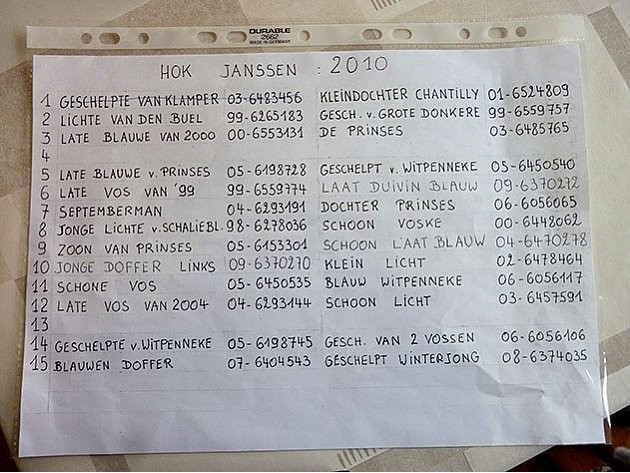 DURABLE
2662
MADE IN GERMANY
HOK JANSSEN : 2010
1 GESCHELPTE VAN KLAMPER 03-6483456 KLEINDOCHTER CHANTILLY 01-6524809
2 LICHTE VAN DEN BUEL 99-6265183 GESCH. v. GROTE DONKERE 99-6559757
3 LATE BLAUWE VAN 2000 00-6553131 DE PRINSES 03-6485765
4
5 LATE BLAUWE v. PRINSES 05-6198728 GESCHELPT v. WITPENNEKE 05-6450540
6 LATE VOS VAN '99 99-6559774 LAAT DUIVIN BLAUW 09-6370272
7 SEPTEMBERMAN 04-6293191 DOCHTER PRINSES 06-6056065
8 JONGE LICHTE v. SCHALIEBL. 98-6278036 SCHOON VOSKE 00-6448062
9 ZOON VAN PRINSES 05-6153301 SCHOON LAAT BLAUW 04-6470278
10 JONGE DOFFER LINKS 09-6370270 KLEIN LICHT 02-6478464
11 SCHONE VOS 05-6450535 BLAUW WITPENNEKE 06-6056117
12 LATE VOS VAN 2004 04-6293144 SCHOON LICHT 03-6457591
13
14 GESCHELPTE v. WITPENNEKE 05-6198745 GESCH. VAN 2 VOSSEN 06-6056106
15 BLAUWEN DOFFER 07-6404543 GESCHELPT WINTERJONG 08-6374035